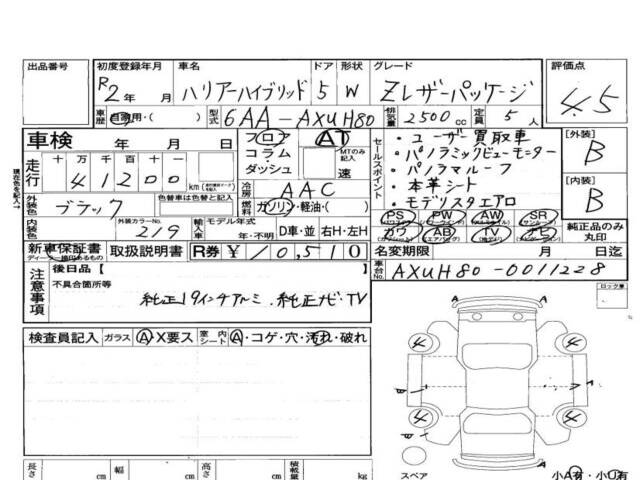 出品番号 初度登録年月 車名 ドア 形状 グレード 評価点
R2年 月 ハリアーハイブリッド 5 W Zレザーパッケージ 4.5
車歴 自家用・( ) 型式 6AA-AXUH80 排気量 2500cc 定員 5人
車検 年 月 日 フロア AT ・ユーザー買取車 [外装]
走行 十万千百十 コラム MTのみ記入 ・パノラミックビューモニター B
41200 km ダッシュ 速 セールスポイント ・パノラマルーフ
冷房 AAC ・本革シート [内装]
外装色 ブラック 色替車は色替と記入 燃料 ガソリン・軽油・( ) ・モデリスタエアロ B
内装色 外装カラーNo. 219 輸入車 モデル年式 年・不明 D車・並 右H・左H PS PW AW SR 純正品のみ丸印
カワ AB TV ナビ
新車保証書 取扱説明書 R券 ¥10,510 名変期限 月 日迄
注意事項 後日品【 】 車台No. AXUH80-0011228
不具合箇所等 ロック車
純正19インチアルミ.純正ナビTV
検査員記入 ガラス A・X要ス 室内シート A・コゲ・穴・汚れ・破れ
A
4 4
B A
4 4
B
A
スペア 小A有・小U有
長さ cm 幅 cm 高さ cm 積載量 kg